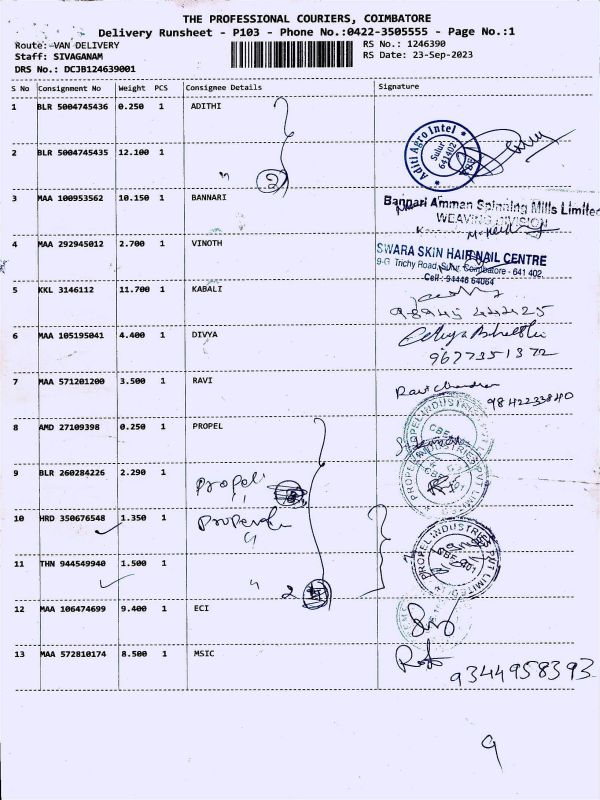 THE PROFESSIONAL COURIERS, COIMBATORE
Delivery Runsheet - P103 - Phone No.:0422-3505555 - Page No.:1
Route: VAN DELIVERY RS No.: 1246390
Staff: SIVAGANAM RS Date: 23-Sep-2023
DRS No.: DCJB124639001
S No Consignment No Weight PCS Consignee Details Signature
1 BLR 5004745436 0.250 1 ADITHI
Aditi Agro Intel
Sulur
641402
2 BLR 5004745435 12.100 1
2
3 MAA 100953562 10.150 1 BANNARI
Bannari Amman Spinning Mills Limited
WEAVING DIVISION
4 MAA 292945012 2.700 1 VINOTH
SWARA SKIN HAIR NAIL CENTRE
9-G Trichy Road, Sulur, Coimbatore - 641 402
Cell : 94446 64064
5 KKL 3146112 11.700 1 KABALI
98945 44425
6 MAA 105195041 4.400 1 DIVYA
9677351372
7 MAA 571201200 3.500 1 RAVI
Ravichandran
9842233840
8 AMD 27109398 0.250 1 PROPEL
PROPEL INDUSTRIES PVT LIMITED
9 BLR 260284226 2.290 1 Propel
PROPEL INDUSTRIES PVT LIMITED
10 HRD 350676548 1.350 1
PROPEL INDUSTRIES PVT LIMITED
11 THN 944549940 1.500 1
2
12 MAA 106474699 9.400 1 ECI
13 MAA 572810174 8.500 1 MSIC
9344958393
9